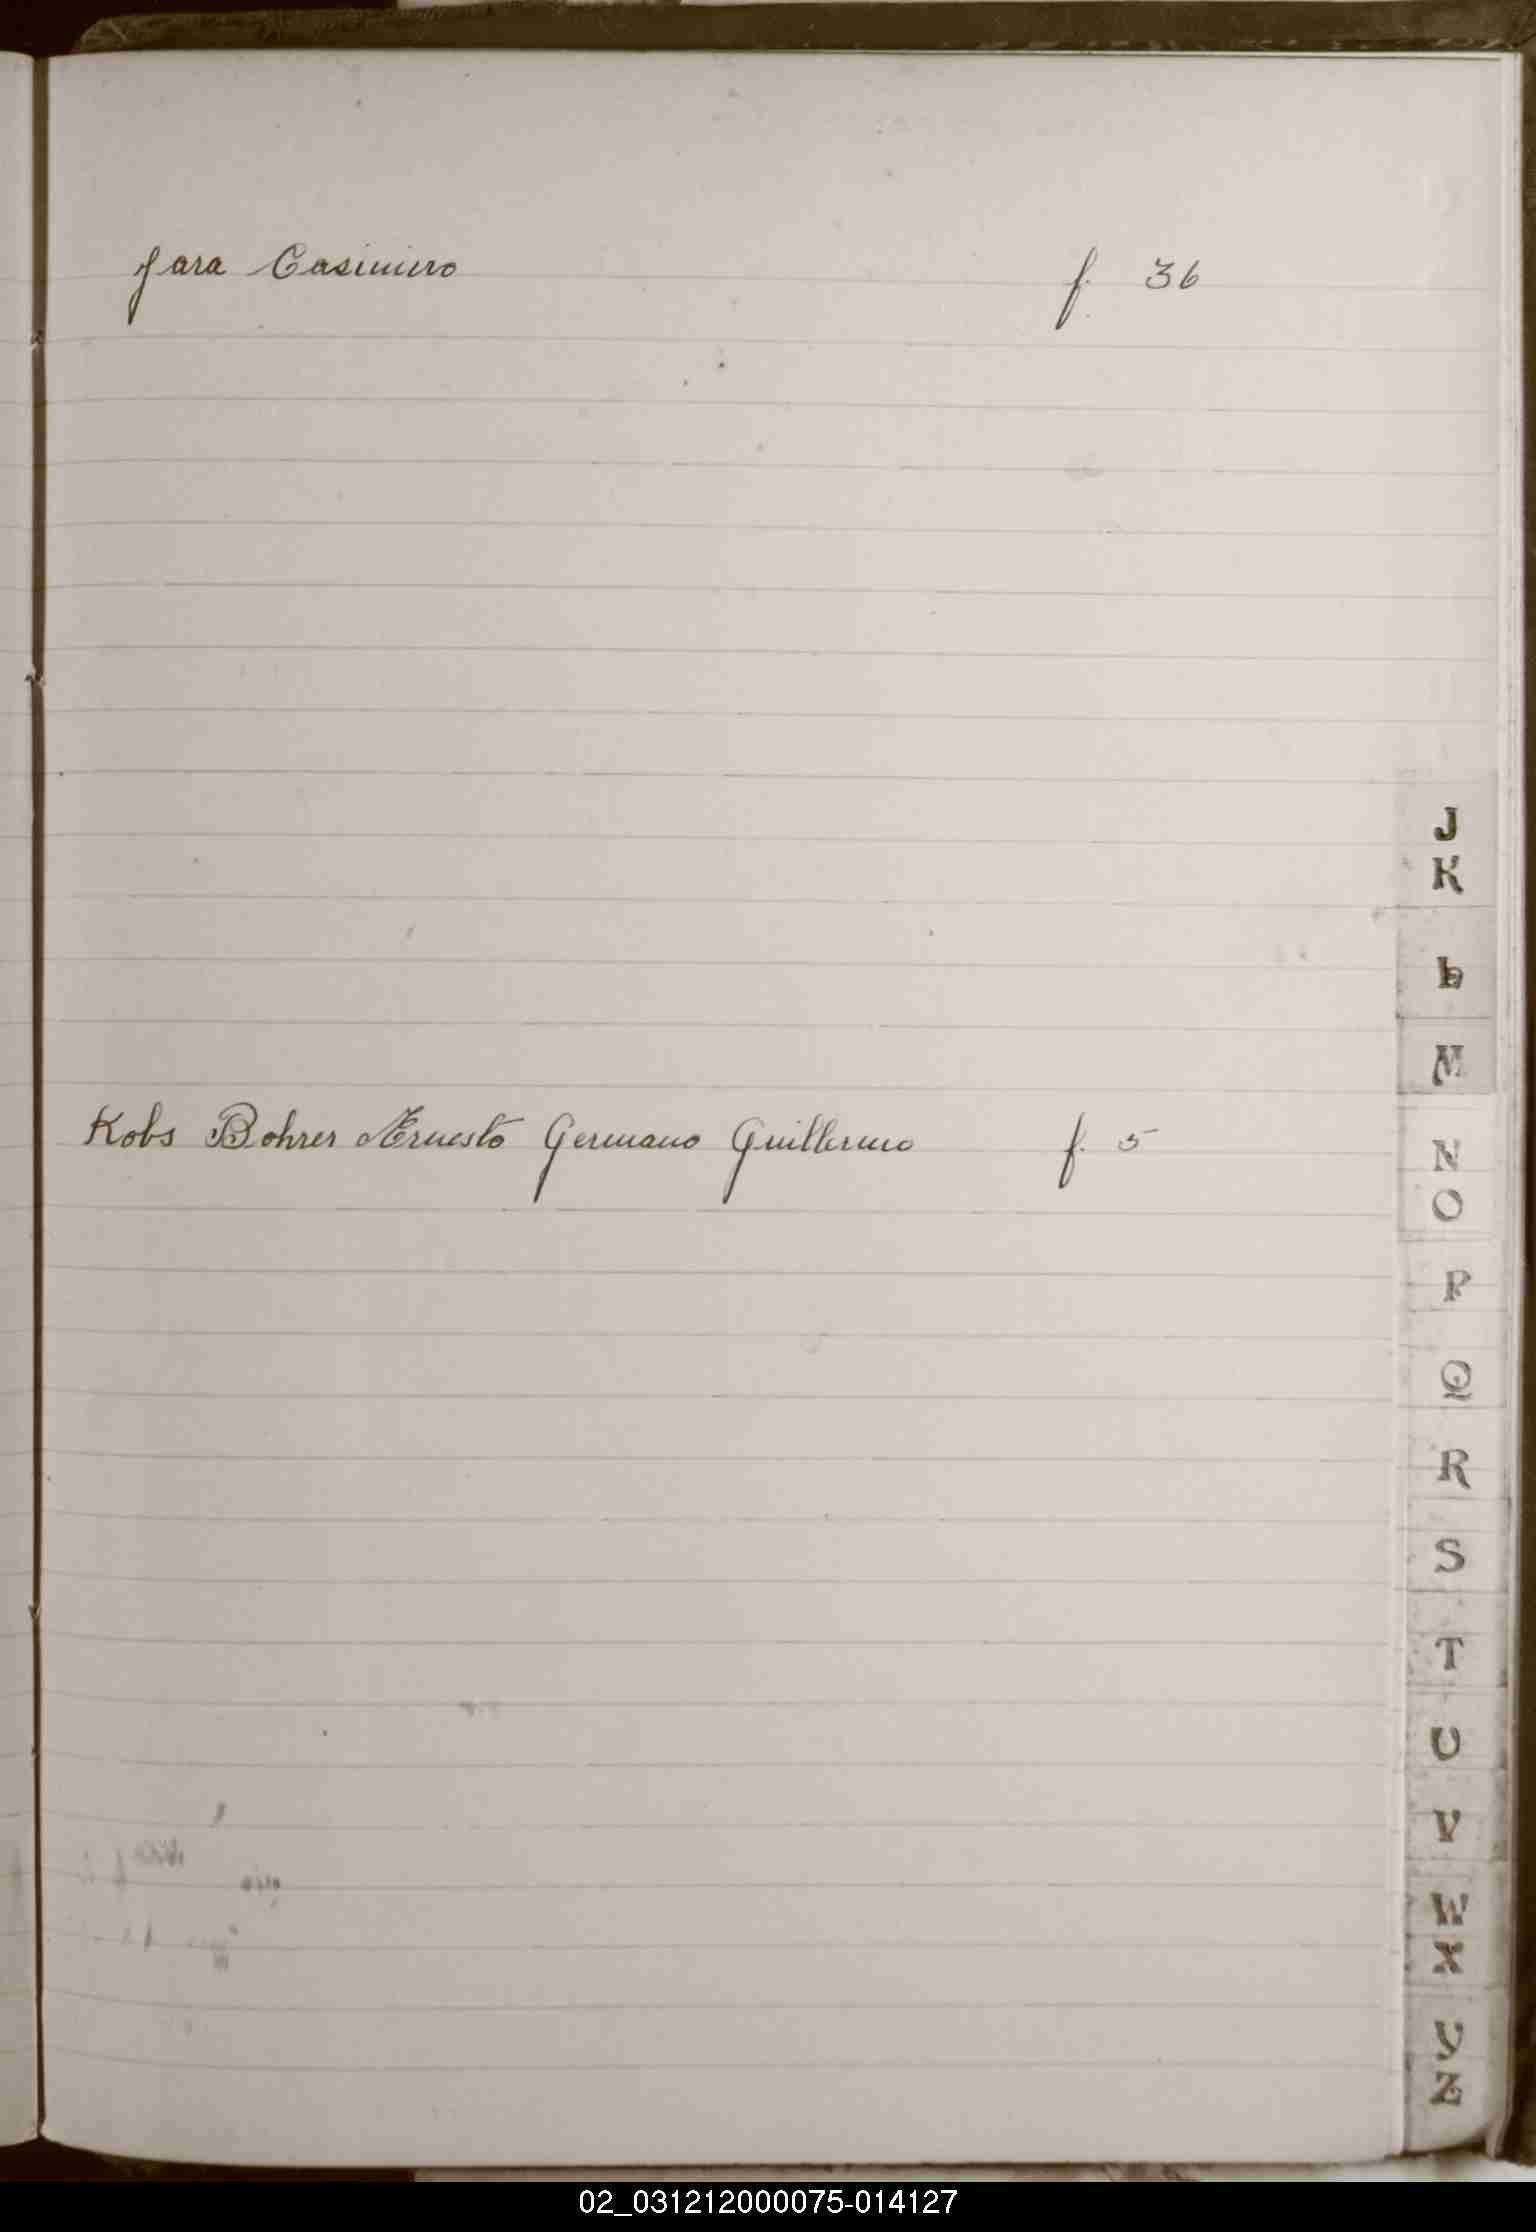 Jara Casimiro f. 36
Kobs Bohrer Ernesto Germano Guillermo f. 5
J
K
L
M
N
O
P
Q
R
S
T
U
V
W
X
Y
Z
02_031212000075-014127